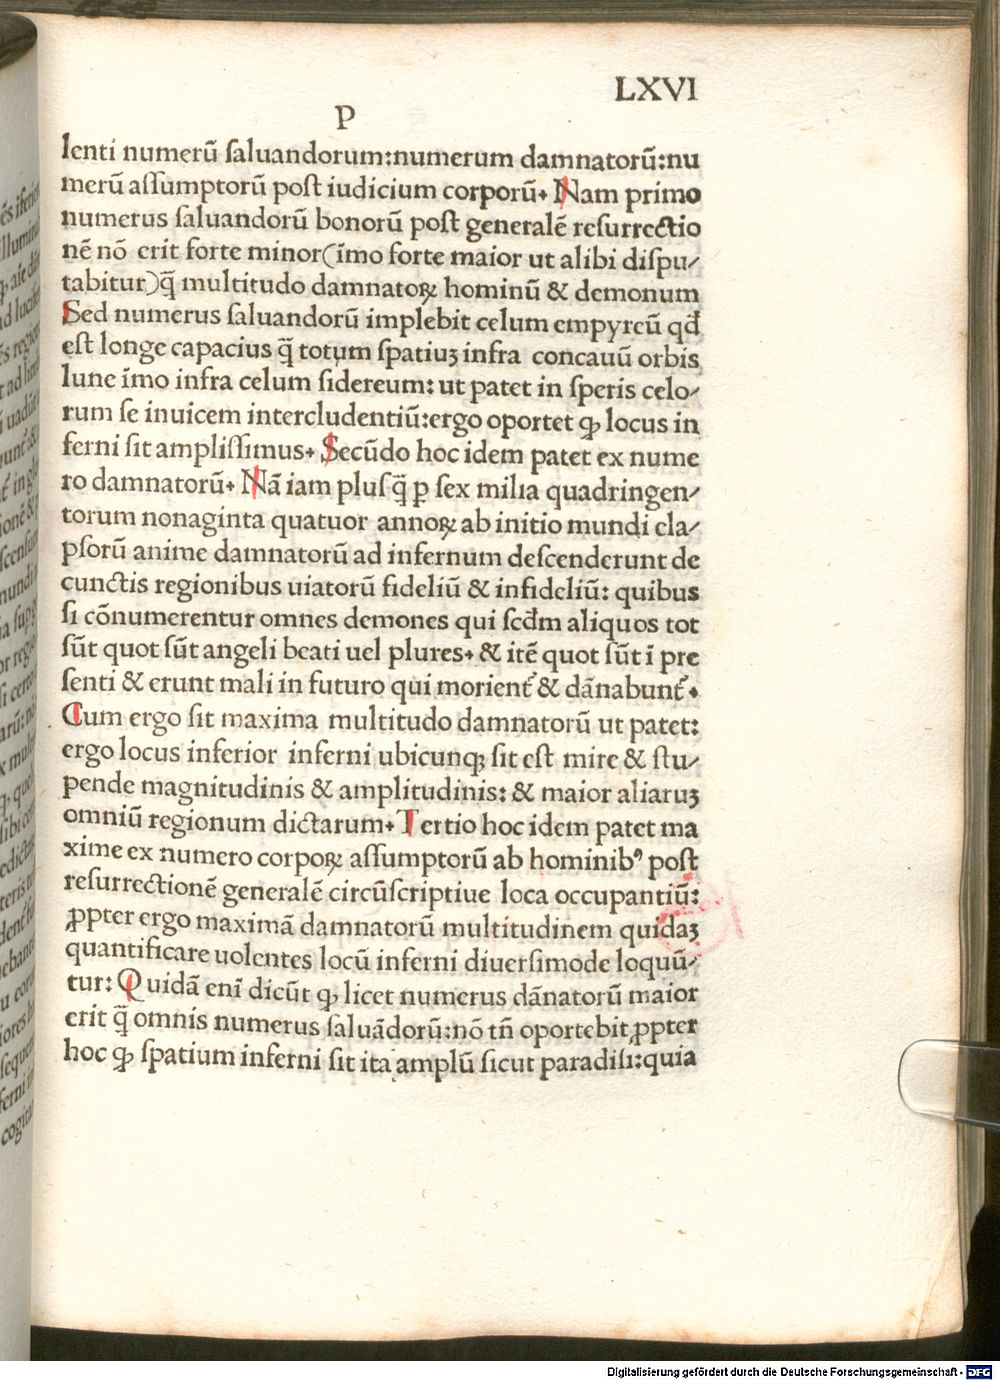 LXVI
P
lenti numerū ſaluandorum:numerum damnatorū:nu
merū aſſumptorū poſt iudicium corporū. Nam primo
numerus ſaluandorū bonorū poſt generalē reſurrectio
nē nō erit forte minor(īmo forte maior ut alibi diſpu⸗
tabitur)q̄̃ multitudo damnatoꝝ hominū & demonum
Sed numerus ſaluandorū implebit celum empyreū qđ
eſt longe capacius q̄̃ totum ſpatiuꝫ infra concauū orbis
lune īmo infra celum ſidereum: ut patet in ſperis celo⸗
rum ſe inuicem intercludentiū:ergo oportet ꝙ locus in
ferni ſit ampliſſimus. Secūdo hoc idem patet ex nume
ro damnatorū. Nā iam pluſq̄̃ p ſex milia quadringen⸗
torum nonaginta quatuor annoꝝ ab initio mundi ela⸗
pſorū anime damnatorū ad infernum deſcenderunt de
cunctis regionibus uiatorū fideliū & infideliū: quibus
ſi cōnumerentur omnes demones qui ſcđm aliquos tot
ſūt quot ſūt angeli beati uel plures. & itē quot ſūt ī pre
ſenti & erunt mali in futuro qui morient᷑ & dānabunt᷑.
Cum ergo ſit maxima multitudo damnatorū ut patet:
ergo locus inferior inferni ubicunqꝫ ſit eſt mire & ſtu⸗
pende magnitudinis & amplitudinis: & maior aliaruꝫ
omniū regionum dictarum. Tertio hoc idem patet ma
xime ex numero corpoꝝ aſſumptorū ab hominibꝰ poſt
reſurrectionē generalē circūſcriptiue loca occupantiū:
ꝓpter ergo maximā damnatorū multitudinem quidaꝫ
quantificare uolentes locū inferni diuerſimode loquū⸗
tur: Quidā enī dicūt ꝙ licet numerus dānatorū maior
erit q̄̃ omnis numerus ſaluādorū:nō tñ oportebit ꝓpter
hoc ꝙ ſpatium inferni ſit ita amplū ſicut paradiſi:quia
Digitalisierung gefördert durch die Deutsche Forschungsgemeinschaft - DFG